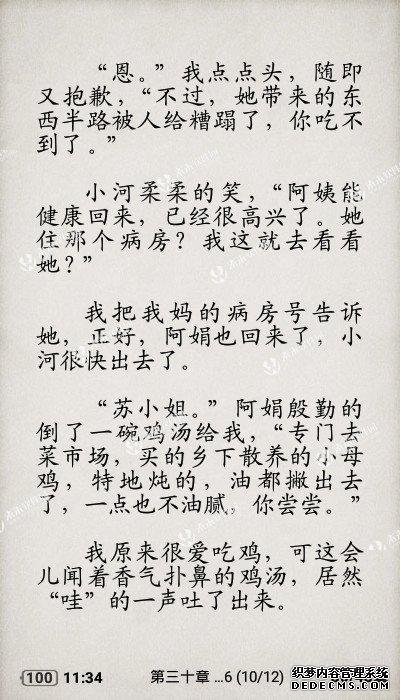 “恩。”我点点头，随即
又抱歉，“不过，她带来的东
西半路被人给糟蹋了，你吃不
到了。”
小河柔柔的笑，“阿姨能
健康回来，已经很高兴了。她
住那个病房？我这就去看看
她？”
我把我妈的病房号告诉
她，正好，阿娟也回来了，小
河很快出去了。
“苏小姐。”阿娟殷勤的
倒了一碗鸡汤给我，“专门去
菜市场，买的乡下散养的小母
鸡，特地炖的，油都撇出去
了，一点也不油腻，你尝尝。”
我原来很爱吃鸡，可这会
儿闻着香气扑鼻的鸡汤，居然
“哇”的一声吐了出来。
100 11:34 第三十章 ...6 (10/12)
织梦内容管理系统
DEDECMS.COM